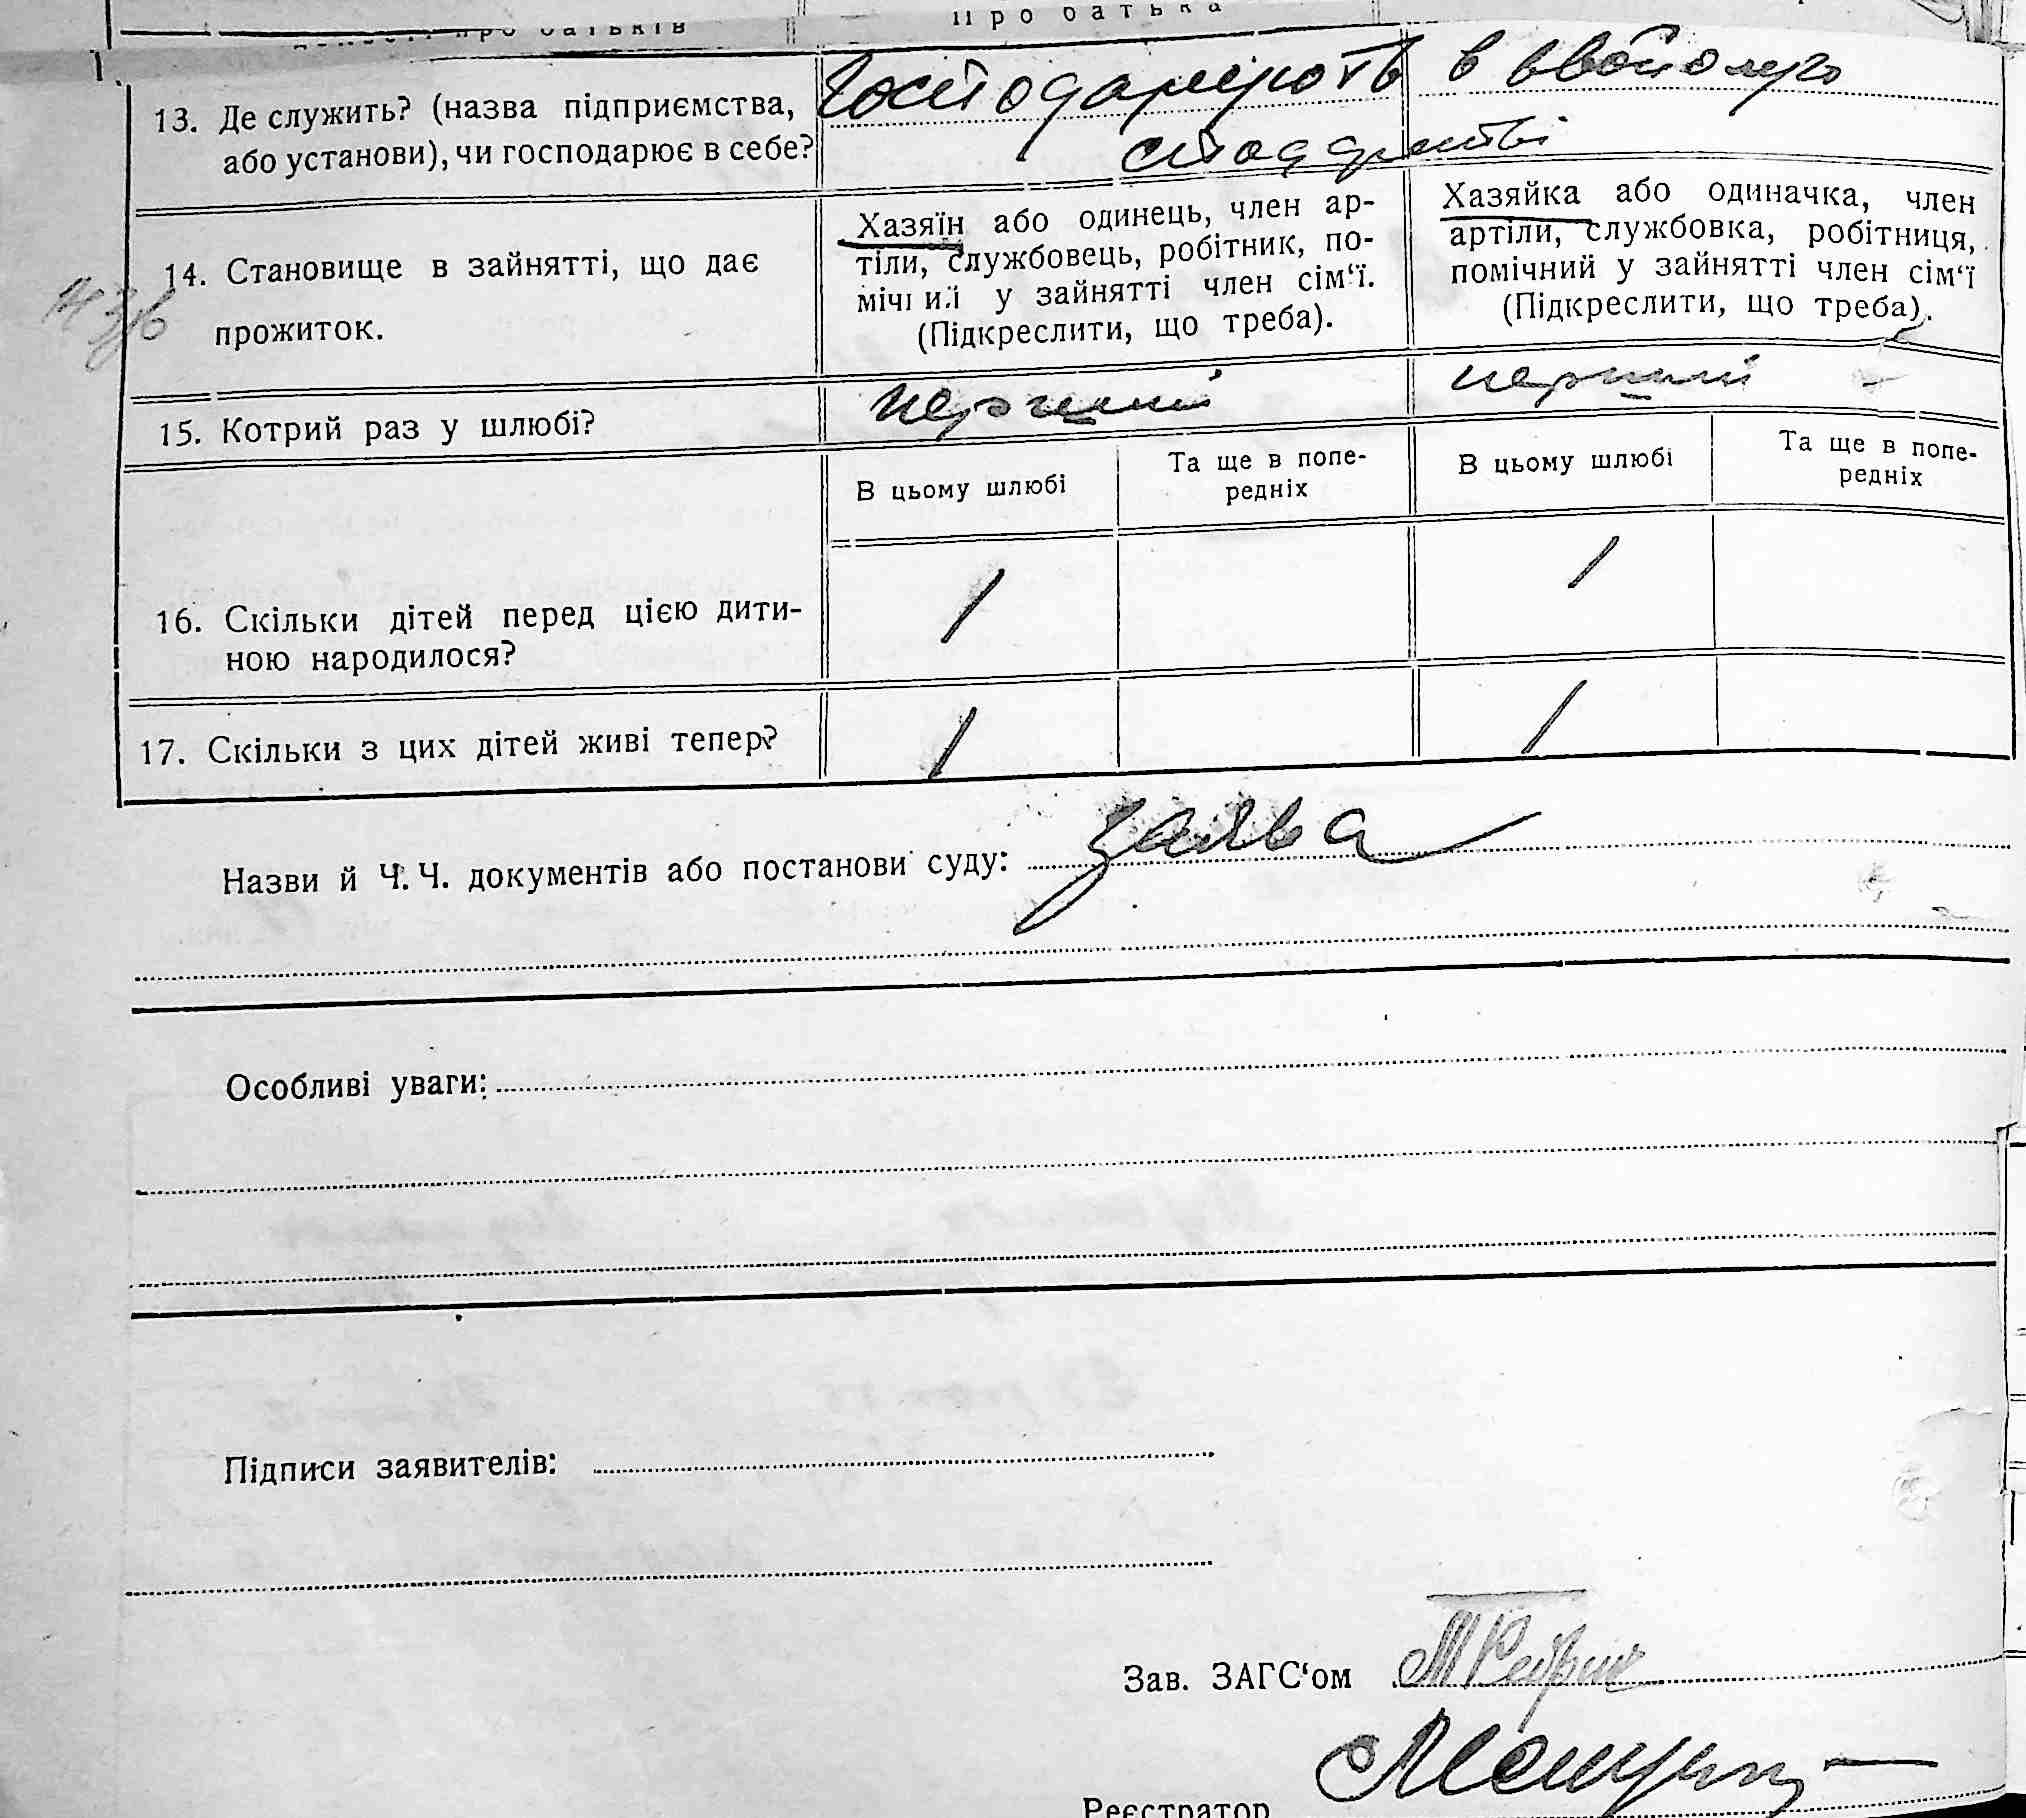 про батьків
Про батька
13. Де служить? (назва підприємства, або установи), чи господарює в себе?
Господарюють в
Хазяїн або одинець, член ар-
тіли, службовець, робітник, по-
мічний у зайнятті член сім‘ї.
(Підкреслити, що треба).
Хазяйка або одиначка, член
артіли, службовка, робітниця,
помічний у зайнятті член сім‘ї
(Підкреслити, що треба).
14. Становище в зайнятті, що дає
прожиток.
15. Котрий раз у шлюбі?
перший
перший
В цьому шлюбі
Та ще в попе-
редніх
В цьому шлюбі
Та ще в попе-
редніх
16. Скільки дітей перед цією дити-
ною народилося?
1
1
17. Скільки з цих дітей живі тепер?
1
1
Назви й Ч. Ч. документів або постанови суду: заява
Особливі уваги:
Підписи заявителів:
Зав. ЗАГС‘ом
Реєстратор